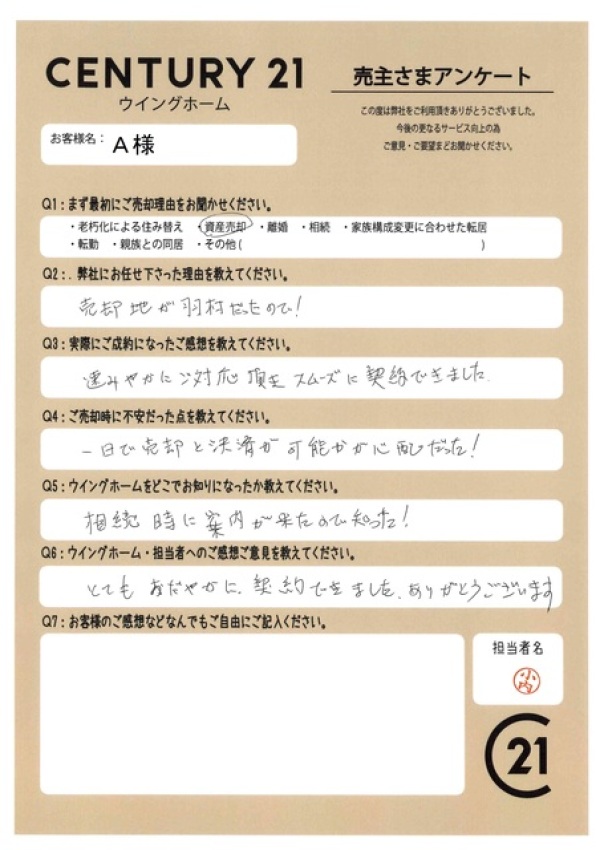 CENTURY 21
ウイングホーム
売主さまアンケート
この度は弊社をご利用頂きありがとうございました。
今後の更なるサービス向上の為
ご意見・ご要望をお聞かせください。
お客様名： A様
Q1：まず最初にご売却理由をお聞かせください。
・老朽化による住み替え ・資産売却 ・離婚 ・相続 ・家族構成変更に合わせた転居
・転勤 ・親族との同居 ・その他( )
Q2：. 弊社にお任せ下さった理由を教えてください。
売却地が羽村だったので！
Q3：実際にご成約になったご感想を教えてください。
速みやかにご対応頂き スムーズに契約できました
Q4：ご売却時に不安だった点を教えてください。
一日で売却と決済が可能かが心配だった！
Q5：ウイングホームをどこでお知りになったか教えてください。
相続時に案内が来たので知った！
Q6：ウイングホーム・担当者へのご感想ご意見を教えてください。
とても おだやかに、契約できました、ありがとうございます
Q7：お客様のご感想などなんでもご自由にご記入ください。
担当者名
小内
21